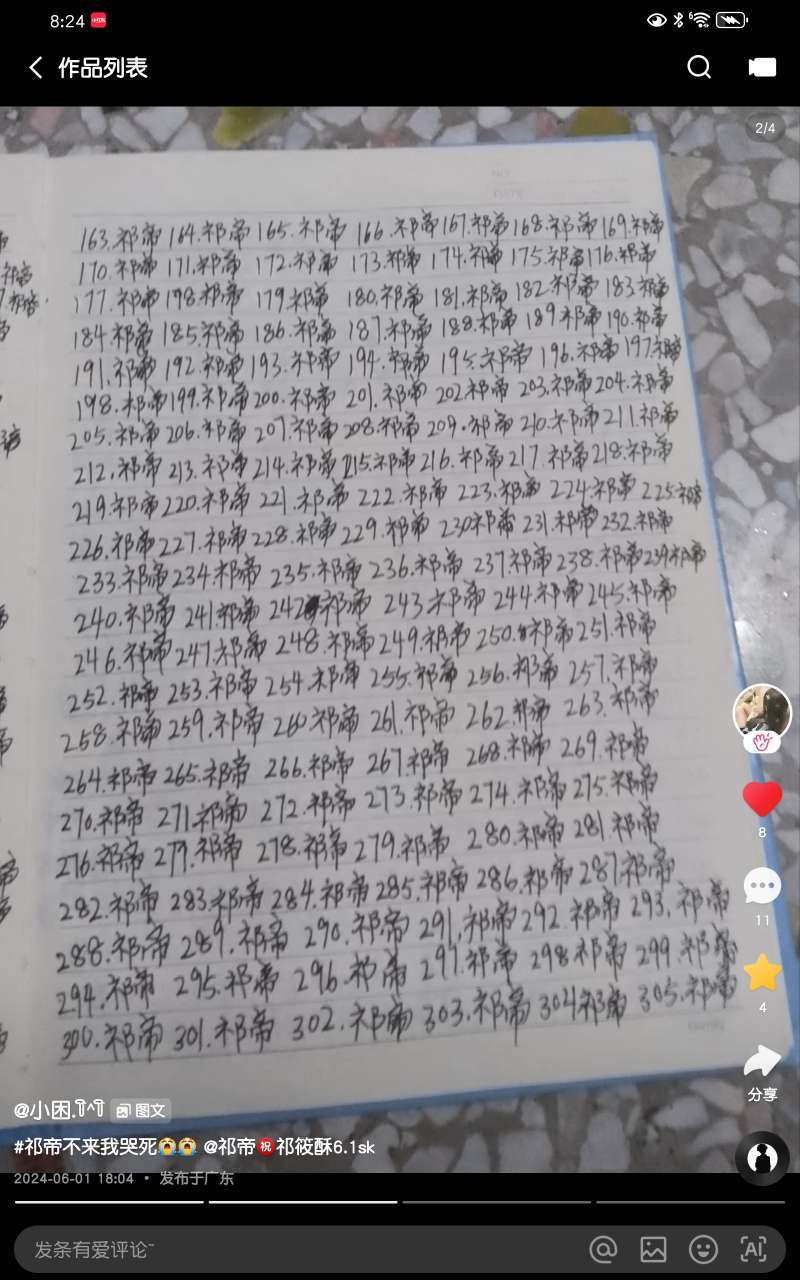 8:24
作品列表
2/4
163.祁帝 164.祁帝 165.祁帝 166.祁帝 167.祁帝 168.祁帝 169.祁帝
170.祁帝 171.祁帝 172.祁帝 173.祁帝 174.祁帝 175.祁帝 176.祁帝
177.祁帝 198.祁帝 179.祁帝 180.祁帝 181.祁帝 182.祁帝 183.祁帝
184.祁帝 185.祁帝 186.祁帝 187.祁帝 188.祁帝 189.祁帝 190.祁帝
191.祁帝 192.祁帝 193.祁帝 194.祁帝 195.祁帝 196.祁帝 197.祁帝
198.祁帝 199.祁帝 200.祁帝 201.祁帝 202.祁帝 203.祁帝 204.祁帝
205.祁帝 206.祁帝 207.祁帝 208.祁帝 209.祁帝 210.祁帝 211.祁帝
212.祁帝 213.祁帝 214.祁帝 215.祁帝 216.祁帝 217.祁帝 218.祁帝
219.祁帝 220.祁帝 221.祁帝 222.祁帝 223.祁帝 224.祁帝 225.祁帝
226.祁帝 227.祁帝 228.祁帝 229.祁帝 230祁帝 231.祁帝 232.祁帝
233.祁帝 234.祁帝 235.祁帝 236.祁帝 237.祁帝 238.祁帝 239.祁帝
240.祁帝 241.祁帝 242祁帝 243.祁帝 244.祁帝 245.祁帝
246.祁帝 247.祁帝 248.祁帝 249.祁帝 250.祁帝 251.祁帝
252.祁帝 253.祁帝 254.祁帝 255.祁帝 256.祁帝 257.祁帝
258.祁帝 259.祁帝 260.祁帝 261.祁帝 262.祁帝 263.祁帝
264.祁帝 265.祁帝 266.祁帝 267.祁帝 268.祁帝 269.祁帝
270.祁帝 271.祁帝 272.祁帝 273.祁帝 274.祁帝 275.祁帝
276.祁帝 277.祁帝 278.祁帝 279.祁帝 280.祁帝 281.祁帝
282.祁帝 283.祁帝 284.祁帝 285.祁帝 286.祁帝 287.祁帝
288.祁帝 289.祁帝 290.祁帝 291.祁帝 292.祁帝 293.祁帝
294.祁帝 295.祁帝 296.祁帝 297.祁帝 298.祁帝 299.祁帝
300.祁帝 301.祁帝 302.祁帝 303.祁帝 304.祁帝 305.祁帝
8
11
4
分享
@小困.T^T 图文
#祁帝不来我哭死😭😭 @祁帝㊗️祁筱酥6.1sk
2024-06-01 18:04 · 发布于广东
发条有爱评论~